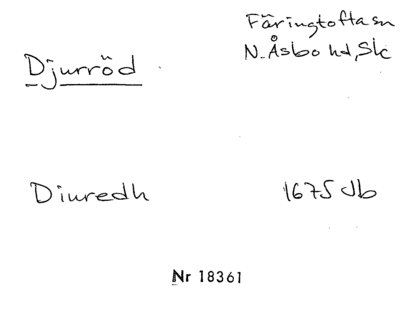 Färingtofta sn
Djurröd
N. Åsbo hd, Sk
Diuredh
1675 Jb
Nr 18361